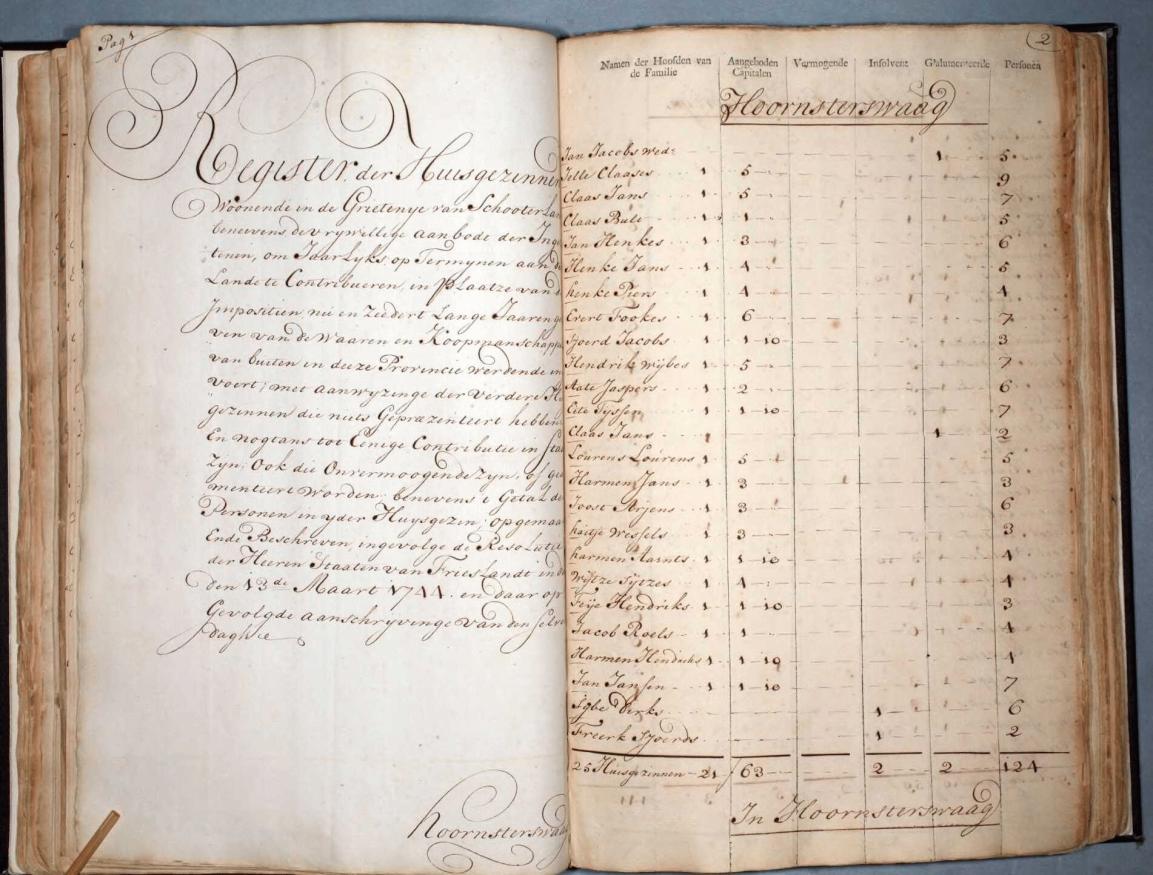 Pag 1
Register der Huisgezinnen
Woonende in de Grietenye van Schooterlan
beneevens de vrywellige aanbode der Inge
tenen, om Jaarlyks op Termynen aan de
Lande te Contribueren, in Plaatze van d
Impositien, nu en Zeedert Lange Jaaren ge
ven van de Waaren en Koopmanschapp
van buiten in deeze Provincie werdende in
voert; met aanwyzinge der verdere H
gezinnen die niets Gepræzenteert hebben
En nogtans tot Eenige Contributie in staa
Zyn; Ook die Onvermoogende Zyn, of
menteert worden; benevens 't Getal de
Personen in yder Huysgezin; opgemaa
Ende Beschreven, ingevolge de Resolutie
der Heeren Staaten van Frieslandt in d
den 13de Maart 1744. en daar op
Gevolgde aanschryvinge van den selv
daghe
Hoornsterswaag
2
Namen der Hoofden van de Familie Aangeboden Capitalen Vermogende Insolvent G'alumenteerde Personen
Hoornsterswaag
Jan Jacobs wed: 1 5
Jelle Claases 1 5 9
Claas Jans 1 5 7
Claas Bule 1 1 5
Jan Henkes 1 3 6
Henke Jans 1 4 5
henke Piers 1 4 4
Evert Fookes 1 6 7
Sjoerd Jacobs 1 1-10 3
Hendrik wybes 1 5 7
Aate Jaspers 1 2 6
Tyssen 1 1-10 7
Claas Jans 1 2
Lourens Lourens 1 5 5
Harmen Jans 1 3 3
Joost Arjens 1 3 6
Wessels 1 3 3
harmen Aarnts 1 1-10 4
Wytze Sytzes 1 4 4
Feije Hendriks 1 1-10 3
Jacob Roels 1 1 4
Harmen Hendriks 1 1-10 4
Jan Jansen 1 1-10 7
Dirks 1 6
Freerk Sjoerds 1 2
25 Huisgezinnen 21 63 2 2 124
In Hoornsterswaag